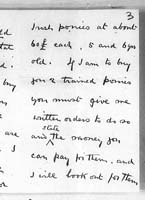 3
Irish ponies at about
60£ each, 5 and 6 yrs
old. If I am to buy
you 2 trained ponies
you must give me
written orders to do so
state
and the money you
can pay for them, and
I will look out for them